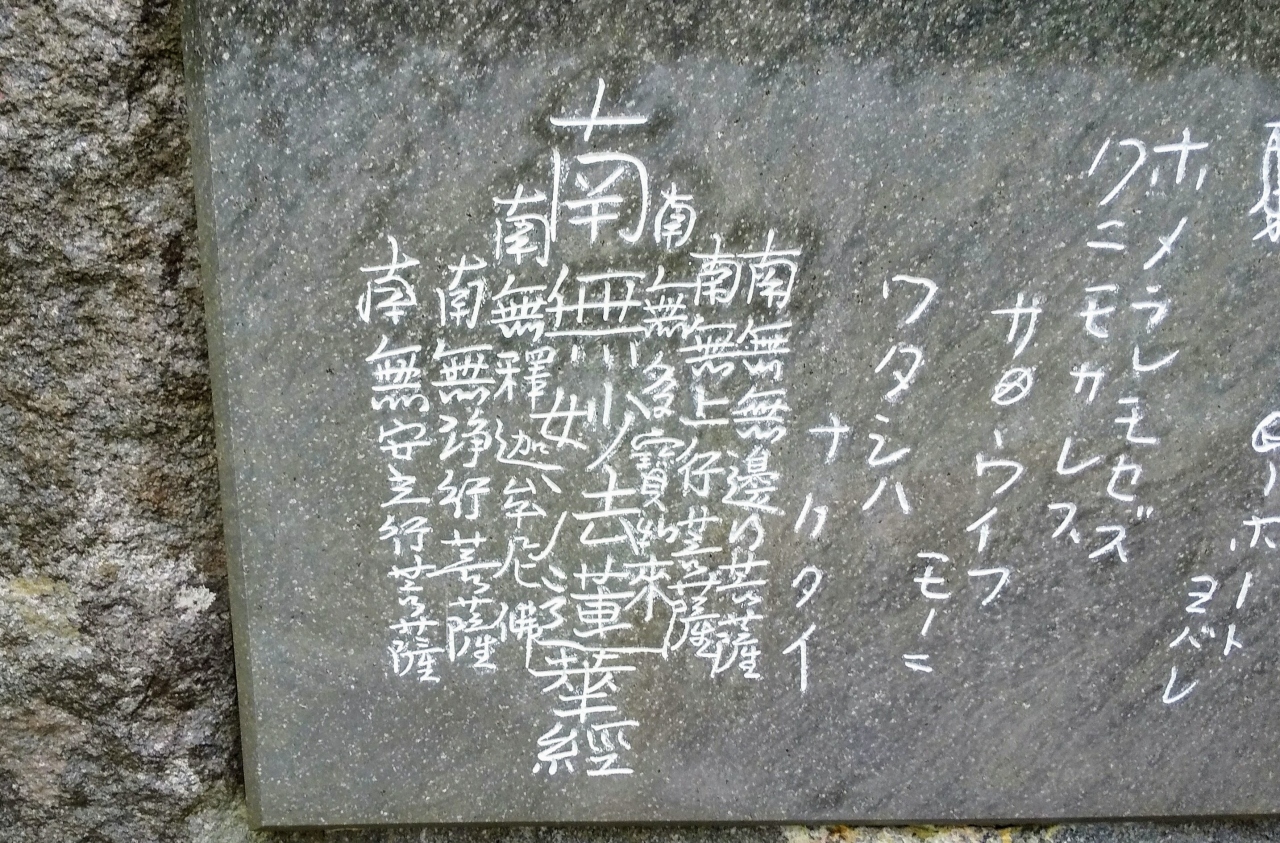 ノボート
ヨバレ
ホメラレモセズ
クニモサレズ
サウイフ
モノニ
ワタシハ
ナリタイ
南無無邊行菩薩
南無上行菩薩
南無多寶如來
南無妙法蓮華經
南無釋迦牟尼佛
南無浄行菩薩
南無安立行菩薩